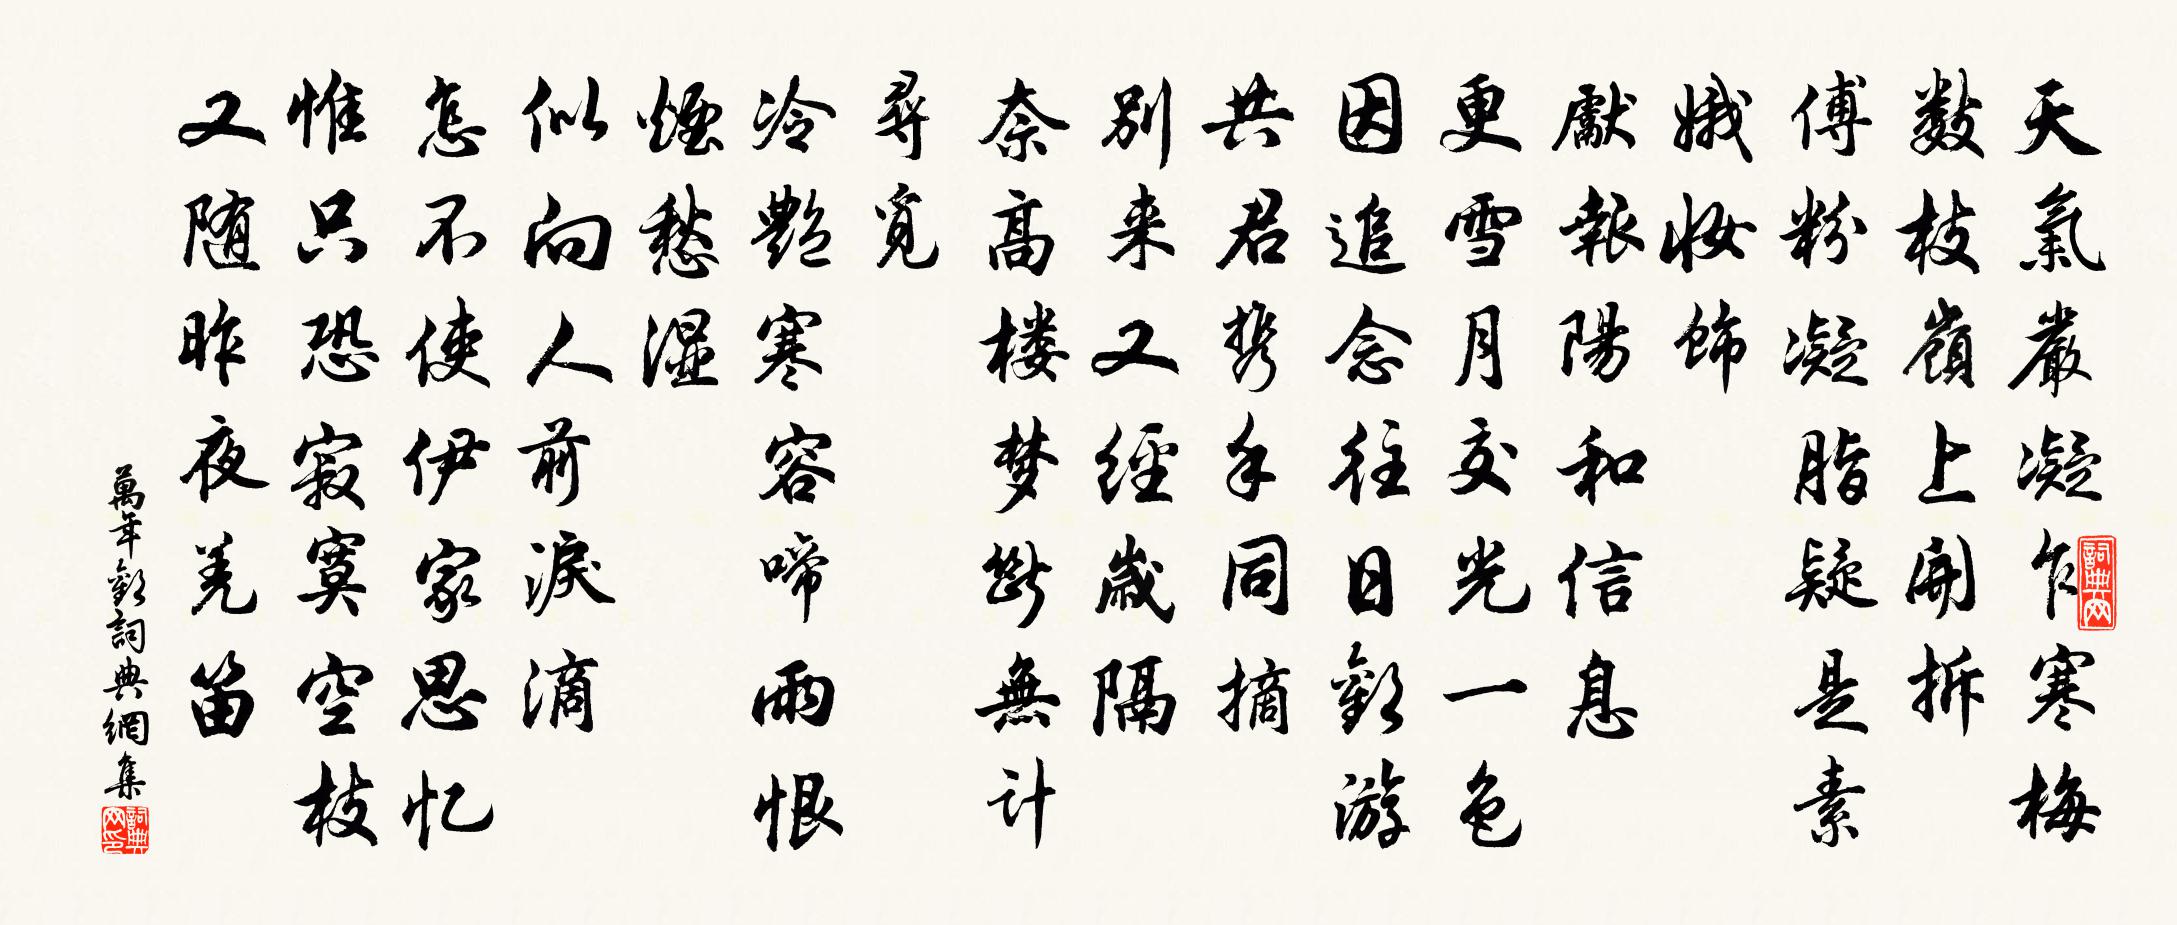 天氣嚴凝乍寒梅
数枝嶺上開拆
傅粉凝脂疑是素
娥妝飾
獻報陽和信息
更雪月交光一色
因追念往日歡游
共君携手同摘
别来又經歲隔
奈高楼梦斷無计
尋覓
冷艷寒容啼雨恨
煙愁濕
似向人前淚滴
怎不使伊家思忆
惟只恐寂寞空枝
又随昨夜羌笛
萬年歡詞典網集
詞典网
詞典网印